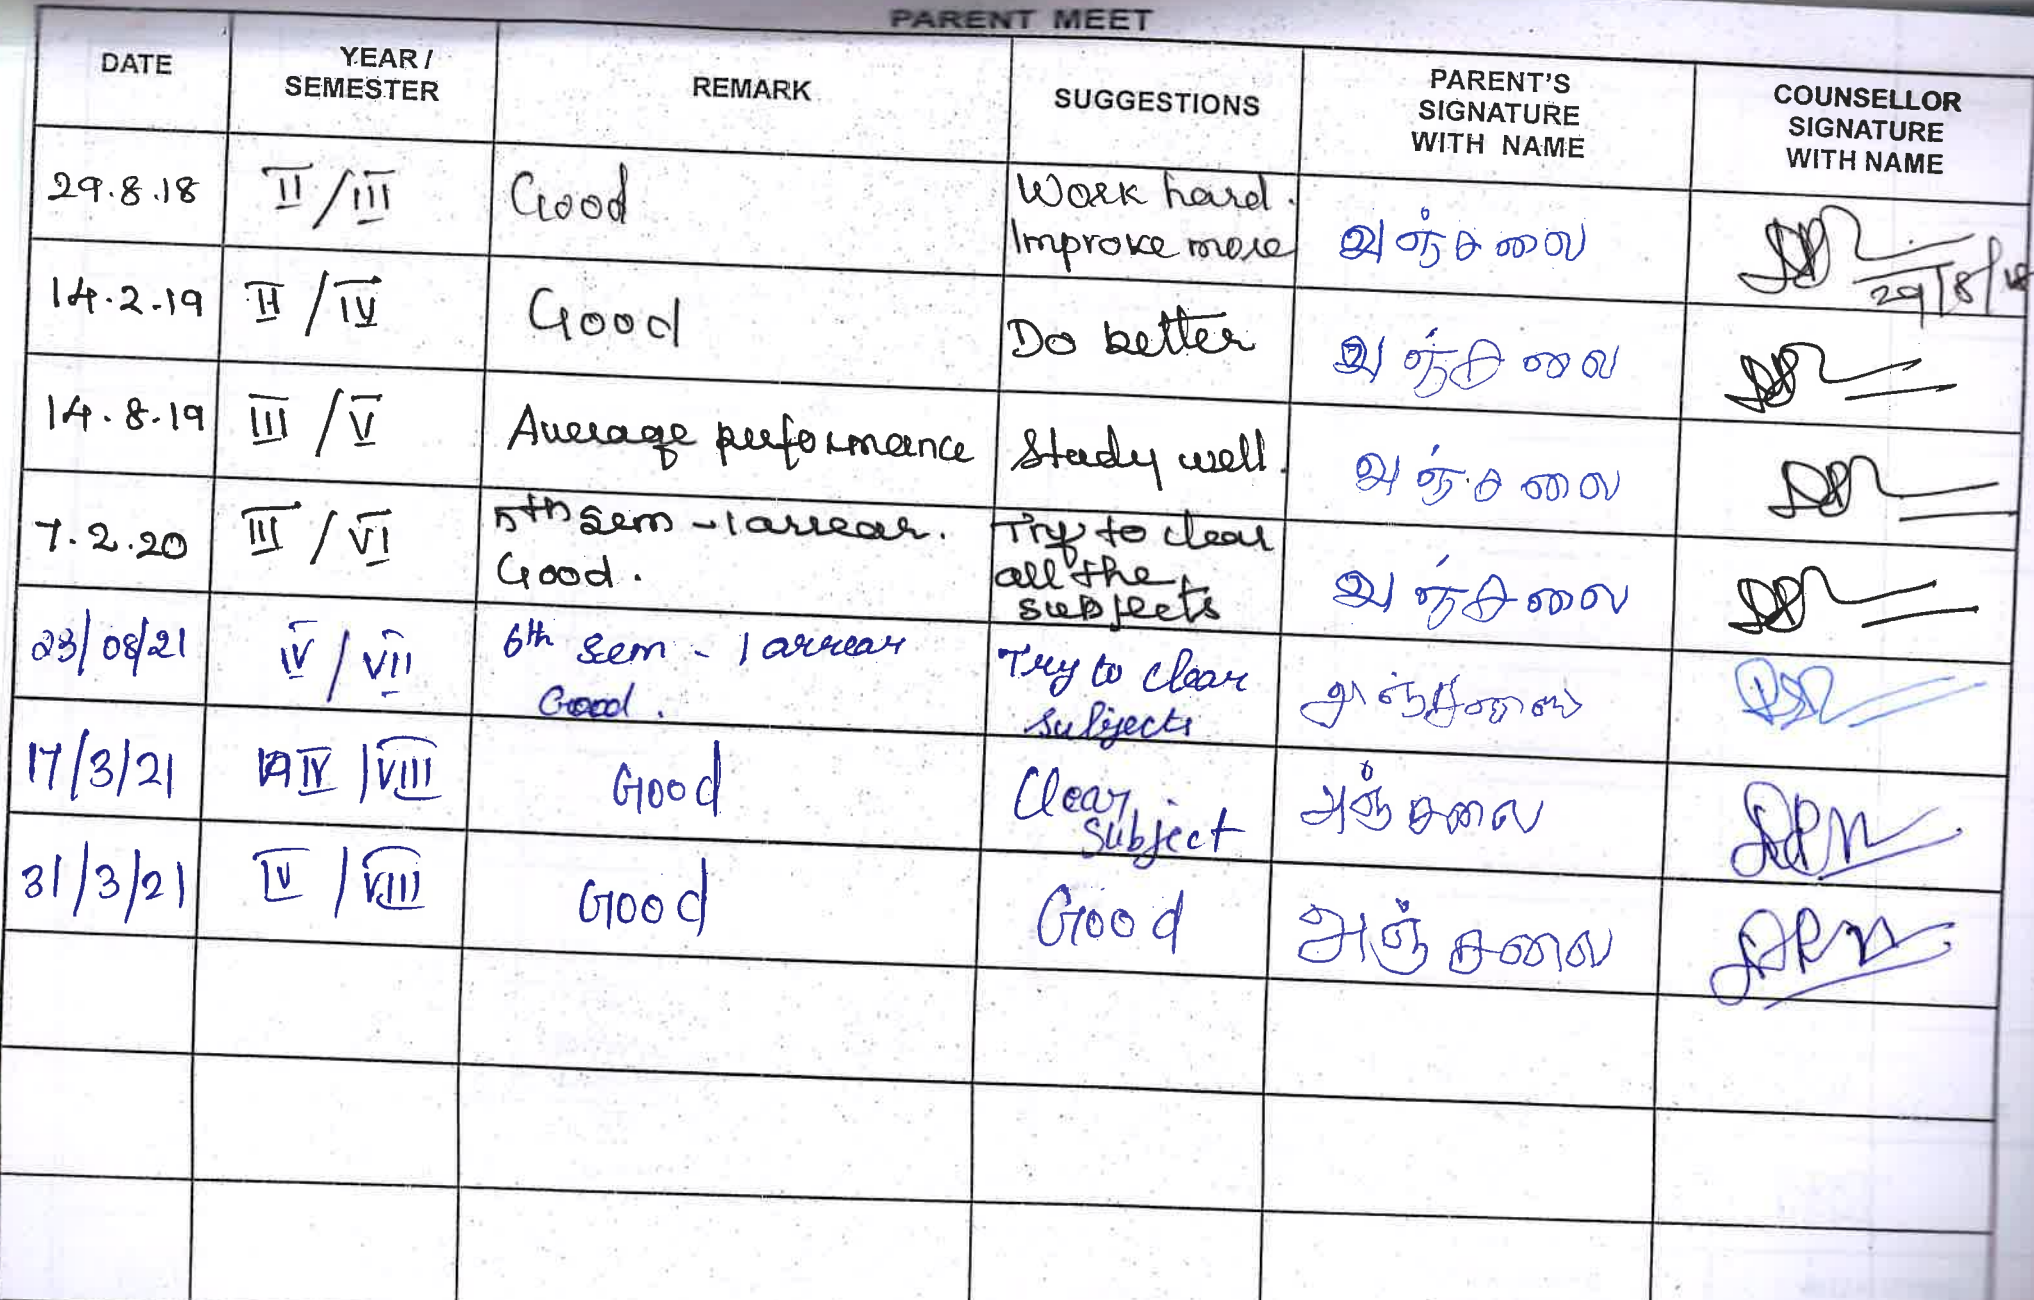 PARENT MEET
DATE
YEAR /
SEMESTER
REMARK
SUGGESTIONS
PARENT'S
SIGNATURE
WITH NAME
COUNSELLOR
SIGNATURE
WITH NAME
29.8.18
II / III
Good
Work hard.
Improve more
அஞ்சலை
29/8/18
14.2.19
II / IV
Good
Do better
அஞ்சலை
14.8.19
III / V
Average performance
Study well.
அஞ்சலை
7.2.20
III / VI
5th sem - 1 arrear.
Good.
Try to clear
all the
subjects
அஞ்சலை
23/08/21
IV / VII
6th sem - 1 arrear
Good.
Try to clear
subjects
அஞ்சலை
17/3/21
IV / VIII
Good
Clear
subject
அஞ்சலை
31/3/21
IV / VIII
Good
Good
அஞ்சலை